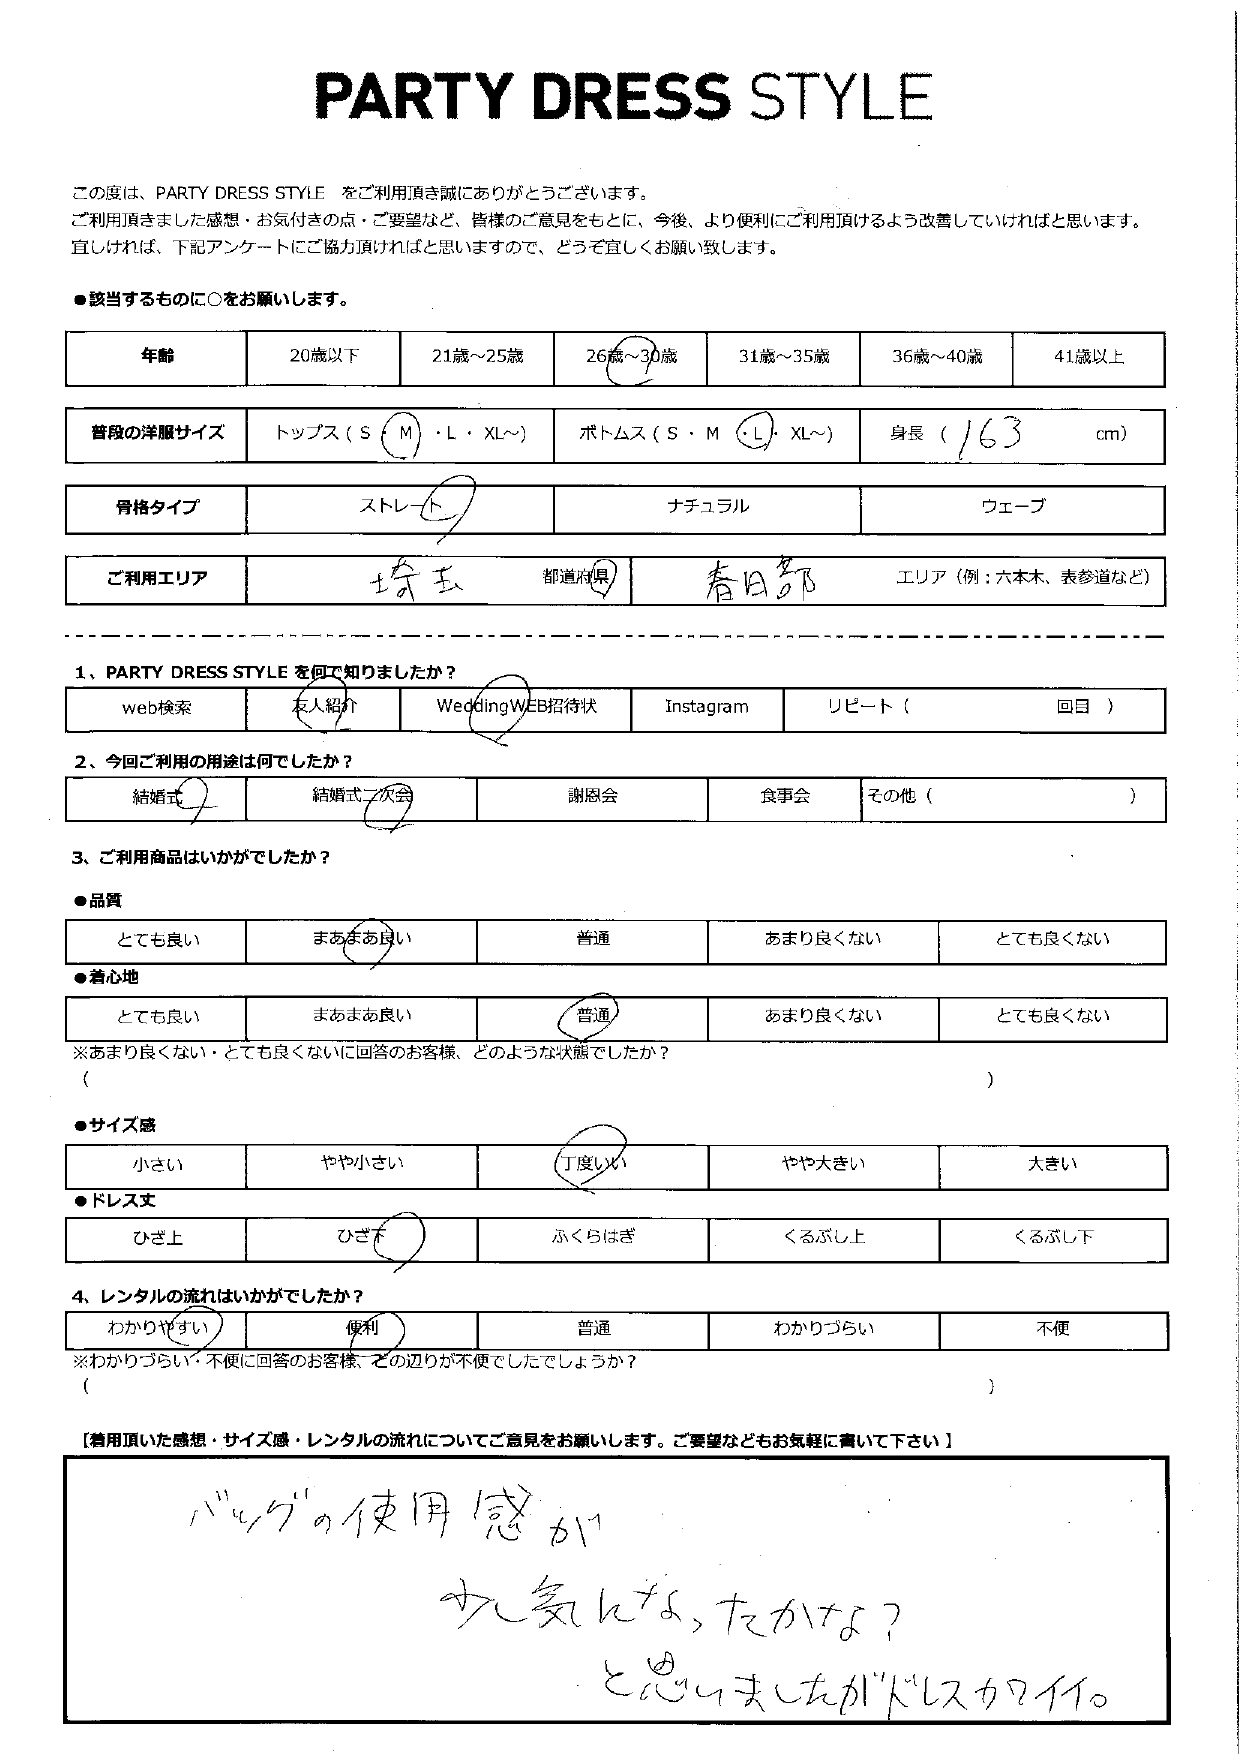 PARTY DRESS STYLE
この度は、PARTY DRESS STYLE をご利用頂き誠にありがとうございます。
ご利用頂きました感想・お気付きの点・ご要望など、皆様のご意見をもとに、今後、より便利にご利用頂けるよう改善していければと思います。
宜しければ、下記アンケートにご協力頂ければと思いますので、どうぞ宜しくお願い致します。
●該当するものに○をお願いします。
年齢 20歳以下 21歳～25歳 26歳～30歳 31歳～35歳 36歳～40歳 41歳以上
普段の洋服サイズ トップス ( S ・ M ・ L ・ XL～) ボトムス ( S ・ M ・ L ・ XL～) 身長 ( 163 cm)
骨格タイプ ストレート ナチュラル ウェーブ
ご利用エリア 埼玉 都道府県 春日部 エリア（例：六本木、表参道など）
1、PARTY DRESS STYLE を何で知りましたか？
web検索 友人紹介 WeddingWEB招待状 Instagram リピート ( 回目 )
2、今回ご利用の用途は何でしたか？
結婚式 結婚式二次会 謝恩会 食事会 その他 ( )
3、ご利用商品はいかがでしたか？
●品質
とても良い まあまあ良い 普通 あまり良くない とても良くない
●着心地
とても良い まあまあ良い 普通 あまり良くない とても良くない
※あまり良くない・とても良くないに回答のお客様、どのような状態でしたか？
( )
●サイズ感
小さい やや小さい 丁度いい やや大きい 大きい
●ドレス丈
ひざ上 ひざ下 ふくらはぎ くるぶし上 くるぶし下
4、レンタルの流れはいかがでしたか？
わかりやすい 便利 普通 わかりづらい 不便
※わかりづらい・不便に回答のお客様、どの辺りが不便でしたでしょうか？
( )
【着用頂いた感想・サイズ感・レンタルの流れについてご意見をお願いします。ご要望などもお気軽に書いて下さい】
バッグの使用感が
少し気になったかな？
と思いましたがドレスカワイイ。